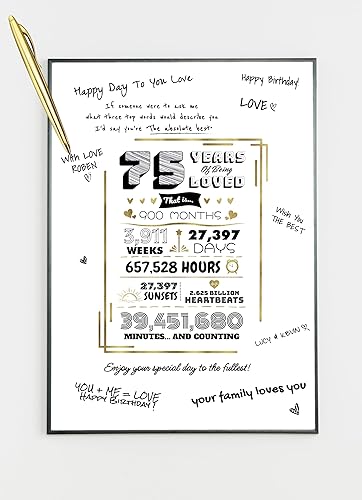 Happy Day To You Love
If someone were to ask me
what three top words would describe you
I'd say you're The absolute best.
Happy Birthday!
LOVE
With LOVE
ROBEN
75 YEARS
Of Being
LOVED
That is...
900 MONTHS
3,911
WEEKS
27,397
DAYS
657,528 HOURS
27,397
SUNSETS
2.625 BILLION
HEARTBEATS
39,451,680
MINUTES... AND COUNTING
Wish You
THE BEST
LUCY & KEVIN
Enjoy your special day to the fullest!
YOU + ME = LOVE
HAPPY BIRTHDAY!
your family loves you